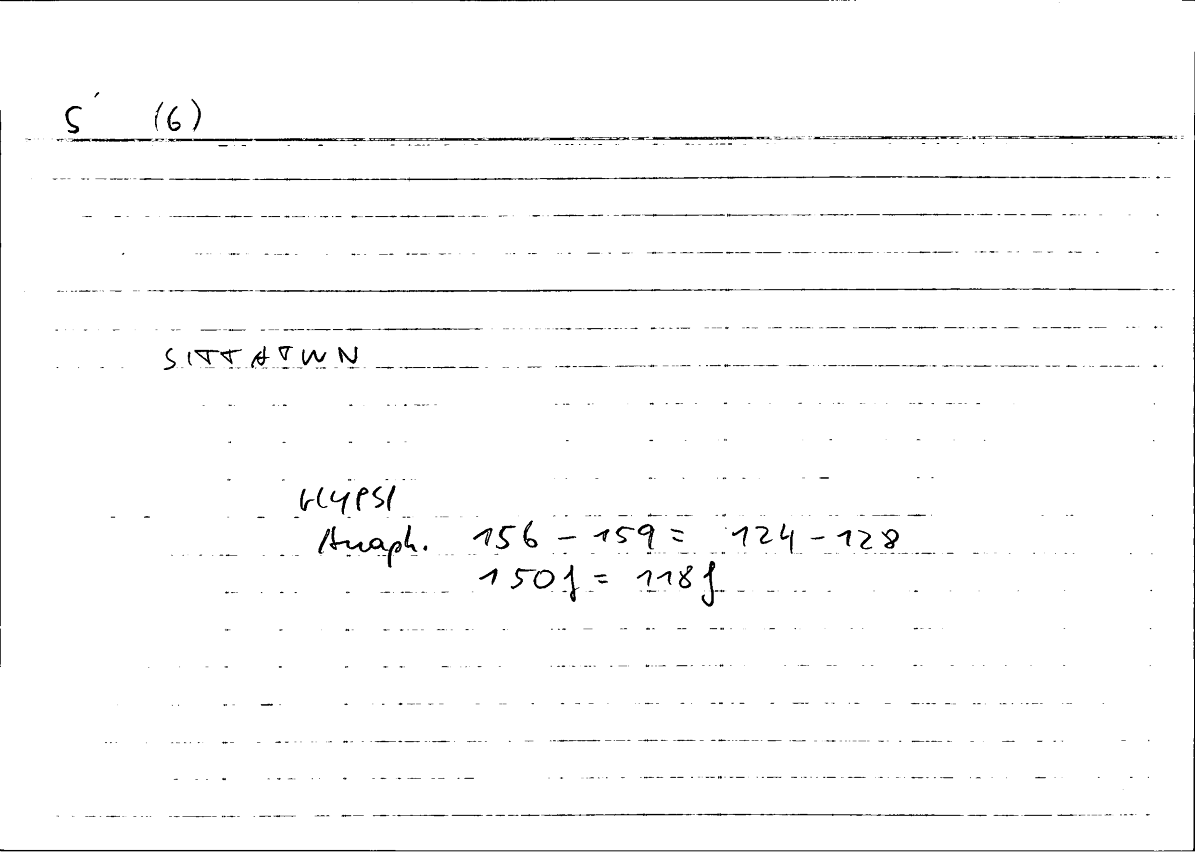 S´ (6)
SITTATWN
HYPSI
Anaph. 156 - 159 = 124 - 128
150f = 118f